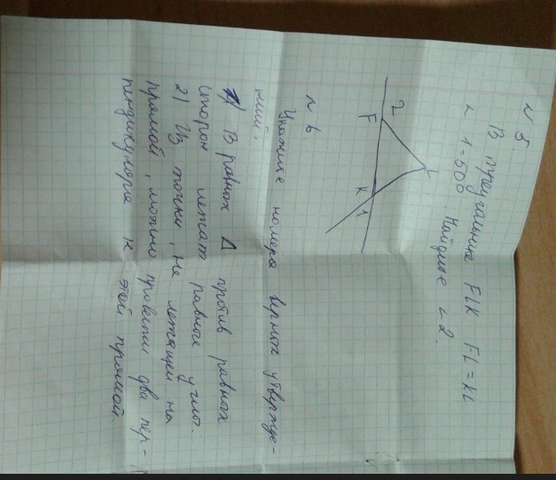 № 5.
В треугольнике FLK FL = KL
∠ 1 = 50°. Найдите ∠ 2.
2
F
L
K
1
№ 6
Укажите номера верных утвержде-
ний.
1) В равных Δ против равных
сторон лежат равные углы.
2) Из точки, не лежащей на
прямой, можно провести два пер-
пендикуляра к этой прямой.